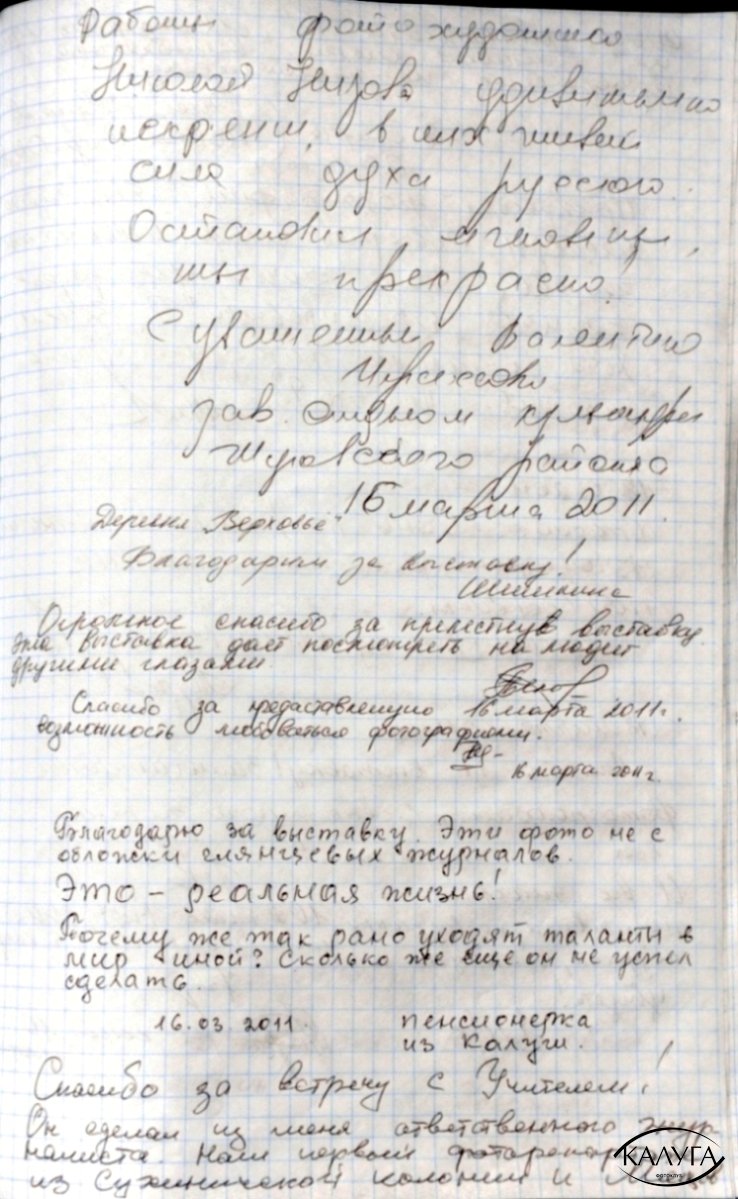 Работы фото художника
Николая Низова удивительно
искренни, в них живёт
сила духа русского.
Остановись мгновенье,
ты прекрасно!
С уважением Валентина
зав. отделом культуры
Жуковского района
16 марта 2011.
Деревня "Верховье"
Благодарим за выставку!
Шишкина
Огромное спасибо за прелестную выставку.
Эта выставка дает посмотреть на людей
другими глазами.
Спасибо за предоставленную 16 марта 2011г.
возможность любоваться фотографиями.
16 марта 2011г
Благодарю за выставку. Эти фото не с
обложки глянцевых журналов.
Это – реальная жизнь!
Почему же так рано уходят таланты в
мир иной? Сколько же еще он не успел
сделать.
16.03.2011 пенсионерка
из Калуги.
Спасибо за встречу с Учителем!
Он сделал из меня ответственного жур-
налиста. Наш первый
из Сухиничской колонии и
КАЛУГА
фотоклуб